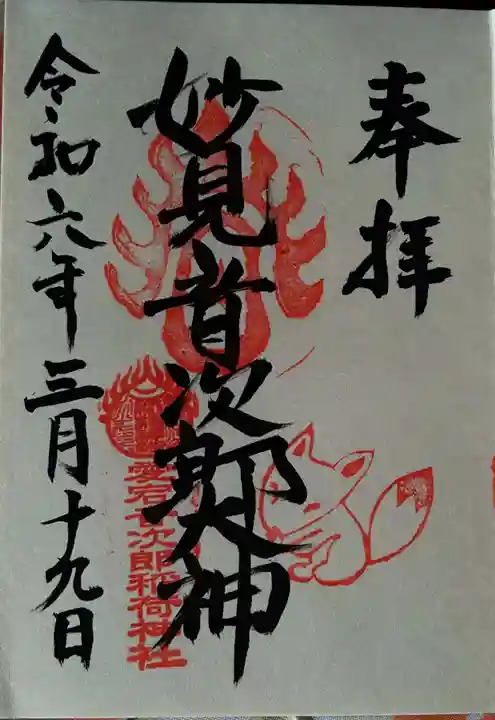 奉拝
妙見音次郎大神
愛宕音次郎稲荷神社
令和六年三月十九日